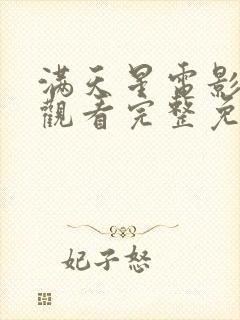 滿天星電影
觀看完整免
妃子怒